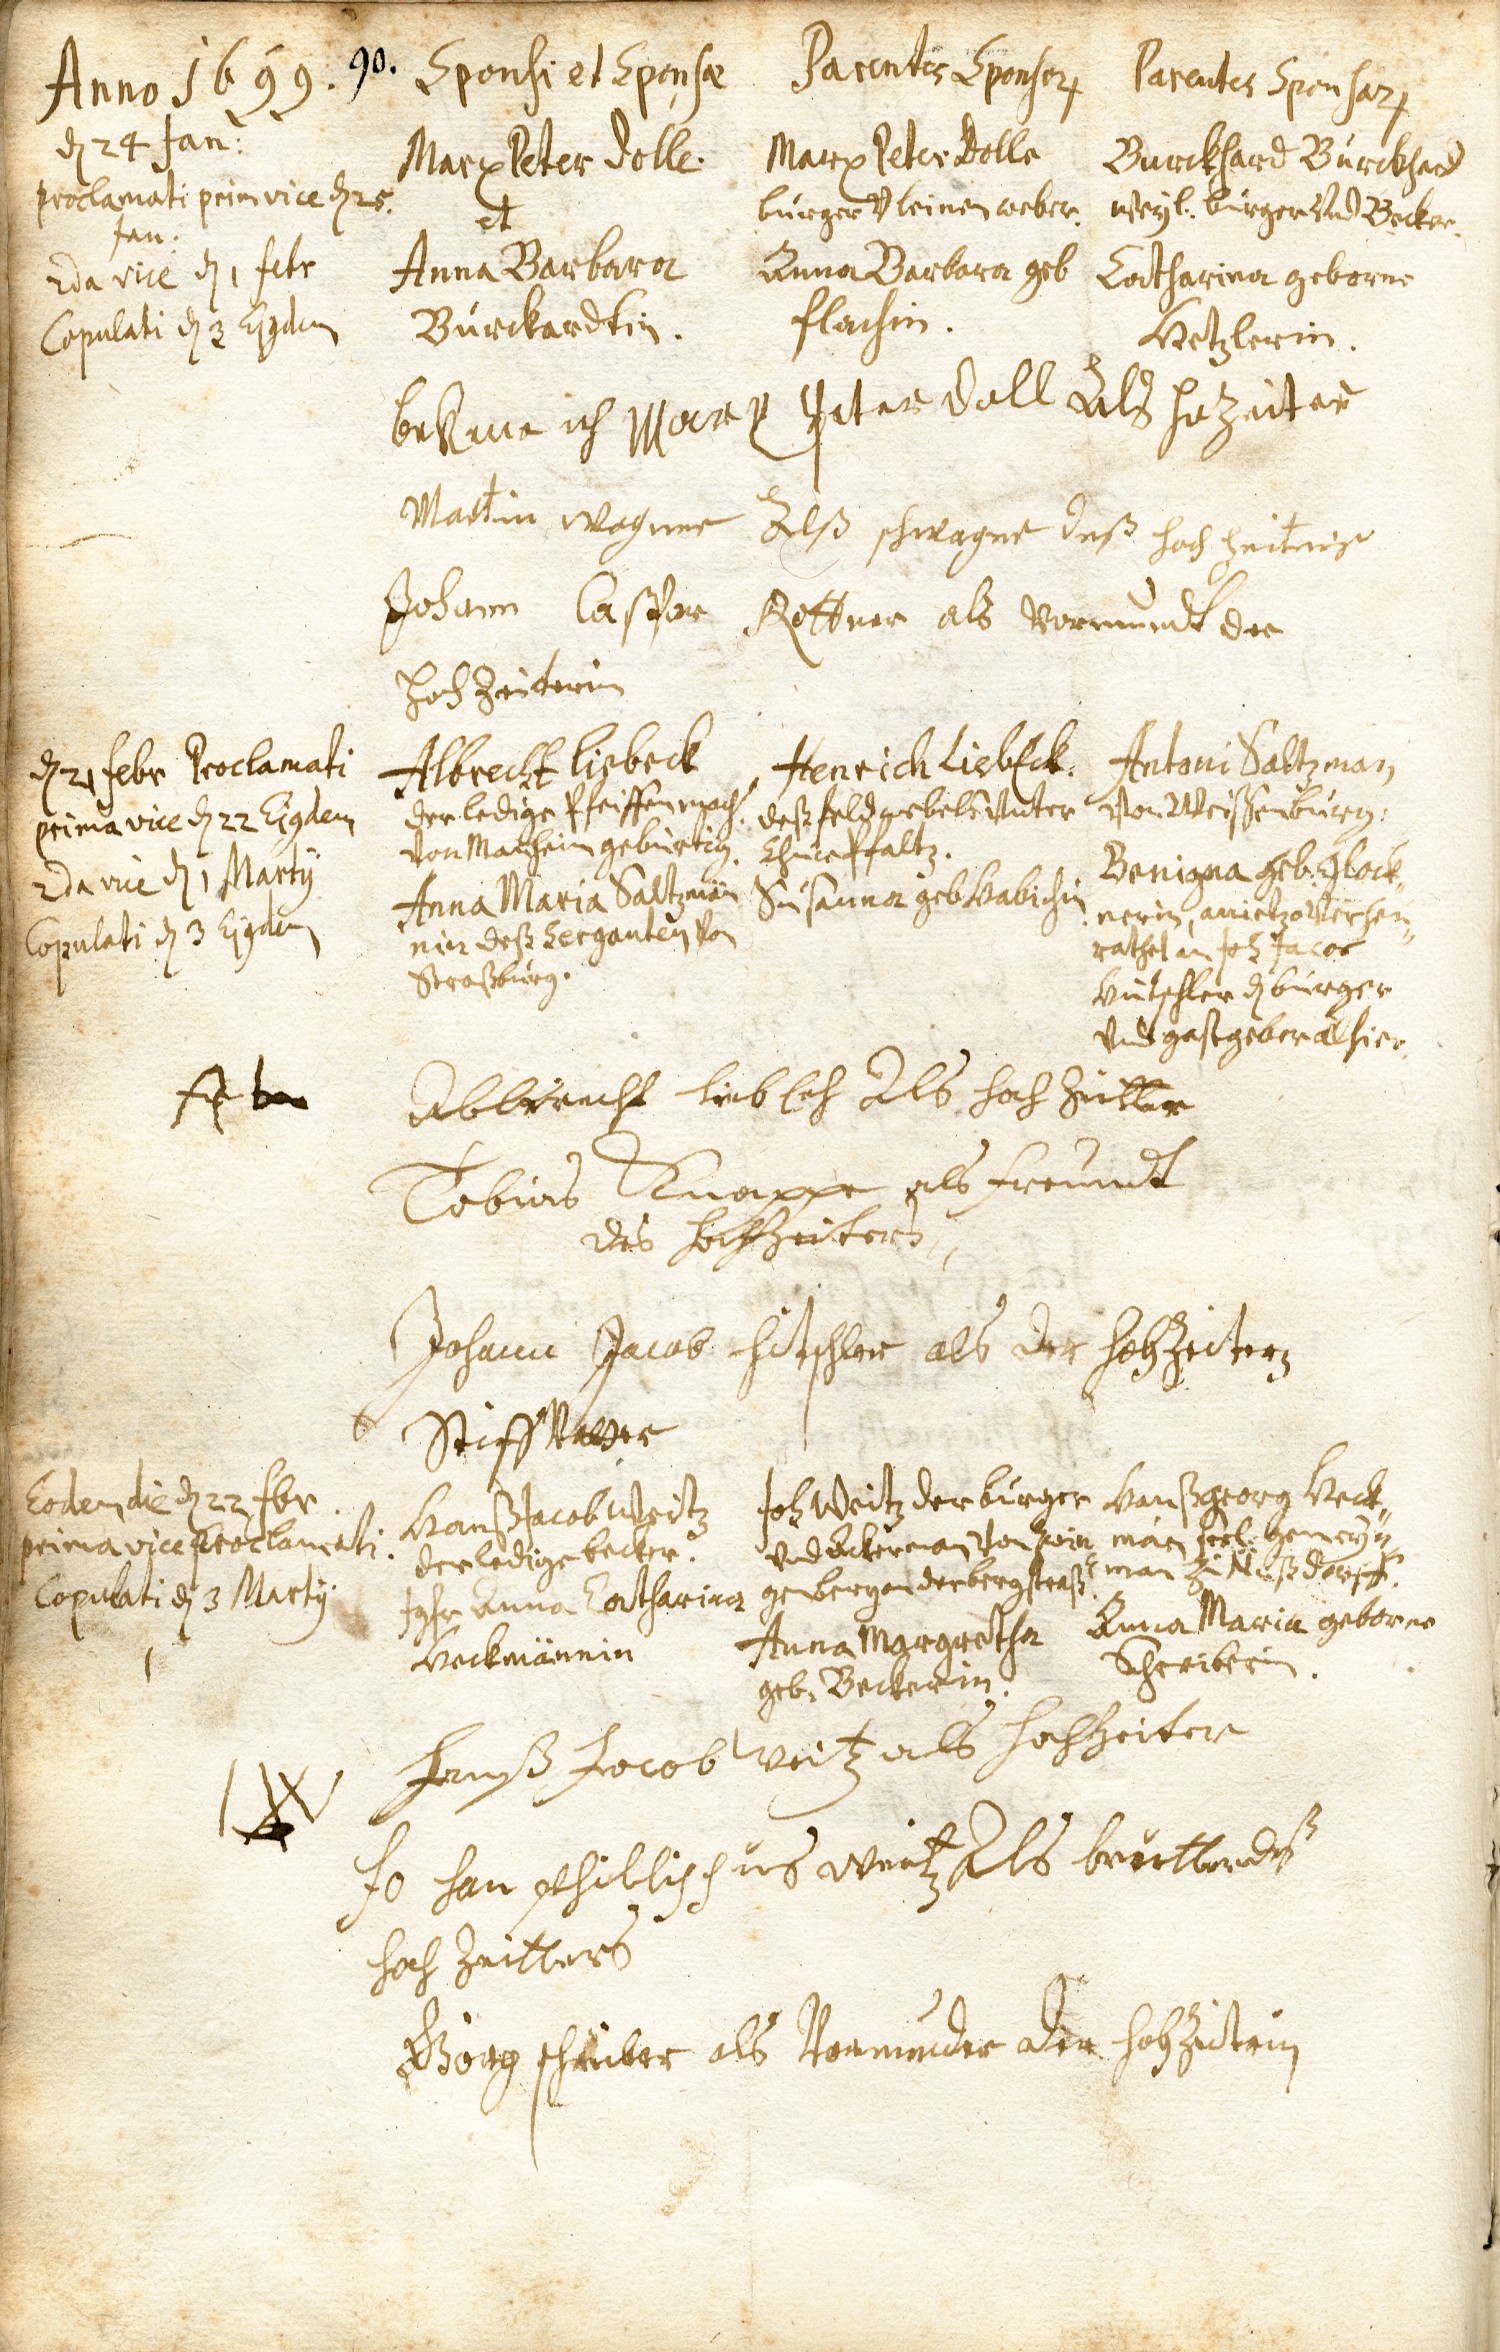 Anno 1699. 90. Sponsi et Sponsæ Parentes Sponsor. Parentes Sponsar.
d. 24 Jan:
proclamati prim vice d. 25.
Jan:
2da vice d. 1 febr
Copulati d. 3 Ejgdem
Marx Peter Dolle.
et
Anna Barbara
Burckardtin.
Marx Peter Dolle
burger V leinenweber.
Anna Barbara geb
flachin.
Burckhard Burckhard
weyl. burger Und Becker.
Catharina geborne
Hetzlerin.
bekene ich Marx Peter Doll Als hozeiter
Martin wagner Alß schwager deß hochzeiters
Johann Casper Rottner als Vormundt der
Hochzeiterin
d. 21 febr Proclamati
prima vice d. 22 Ejgdem
2da vice d. 1 Martÿ
Copulati d. 3 Ejgdem
Albrecht Liebeck
der ledige Pfeiffenmach.
Von Manheim gebürtig.
Anna Maria Saltzmän
nin deß Serganten Von
Straßburg.
Henrich Liebeck.
deß feldwebels Unter
ChurPfaltz.
Susanna geb Habichin
Antoni Saltzman
Von Weissenburg.
Benigna geb. Glock„
nerin, anietzo Verhey„
rathet an Joh Jacob
Hütschler d. burger
Und gastgeber alhier.
Albrecht liebech Als hochzeitter
Tobias Knappe als freundt
des hochzeiters
Johann Jacob Hitschler als der hochzeiterin
Stiff Vatter
Eodem die d. 22 fbr.
prima vice proclamati.
Copulati d. 3 Martÿ
Hanß Jacob Weitz
der ledige becker.
Jgfr Anna Catharina
Heckmännin
Joh Weitz der burger
Und Ackerman Von Zwin
genberg an der bergstraß.
Anna Margretha
geb. Beckerin.
Hanß Georg Heck„
man seel. gemeyn„
man Zu Nußdorff.
Anna Maria geborne
Schreiberin.
Hanß Jacob Weitz als hochzeiter
Johan phillippus weitz Als brutter deß
hochzeitters
Görg schreiber als Vormunder der hochzeiterin